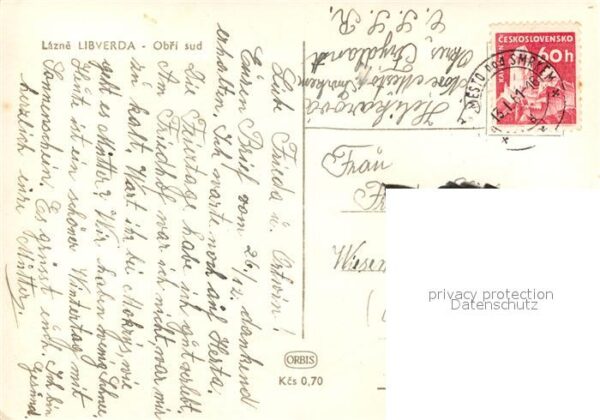 Lázně LIBVERDA - Obří sud
Liebe Frieda u. Ortwin!
Euren Brief vom 26./12. dankend
erhalten. Ich warte noch auf Herta.
Die Feiertage habe ich gut erlebt.
Am Friedhof war ich nicht, war mir
zu kalt. Wart ihr bei Mokrys, wie
geht es Mutter? Wir haben wenig Schnee.
Heute ist ein schöner Wintertag mit
Sonnenschein. Es grüsst euch. Ich bin
gesund.
herzlich eure Mutter.
Helikarová
Nové Město p. Smrkem
Okres Frýdlant
Č. S. S. R.
ČESKOSLOVENSKO
60 h
MĚSTO POD SMRKEM
Frau
Wiesen
ORBIS
Kčs 0,70
privacy protection
Datenschutz